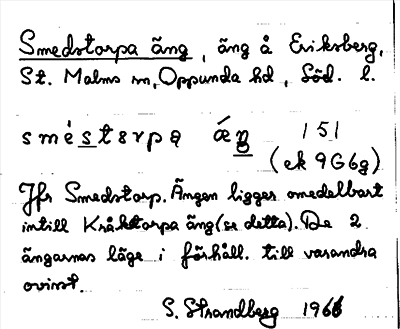 Smedstorpa äng, äng å Eriksberg,
St. Malms sn, Oppunda hd, Söd. l.
smèstɛrpa ǽŋ 151
(ek 9G6g)
Jfr Smedstorp. Ängen ligger omedelbart
intill Kråktorpa äng (se detta). De 2
ängarnas läge i förhåll. till varandra
ovisst.
S. Strandberg 1966